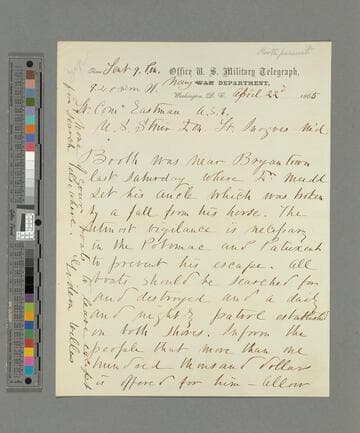 Booth pursuit
Sent 9. Pm. Office U. S. Military Telegraph,
Navy WAR DEPARTMENT,
9.20 PM Washington, D. C. April 22d 1865
Lt. Com' Eastman
U. S. Str Don St. Inigoes Md
Booth was near Bryantown
last Saturday where Dr Mudd
set his ancle which was broken
by a fall from his horse. The
utmost vigilance is necessary
in the Potomac and Patuxent
to prevent his escape. All
boats should be searched for
and destroyed and a daily
and nightly patrol established
on both shores. Inform the
people that more than one
hundred thousand dollars
is offered for him — Allow
none of your boats to leave except
for such
Gideon Welles